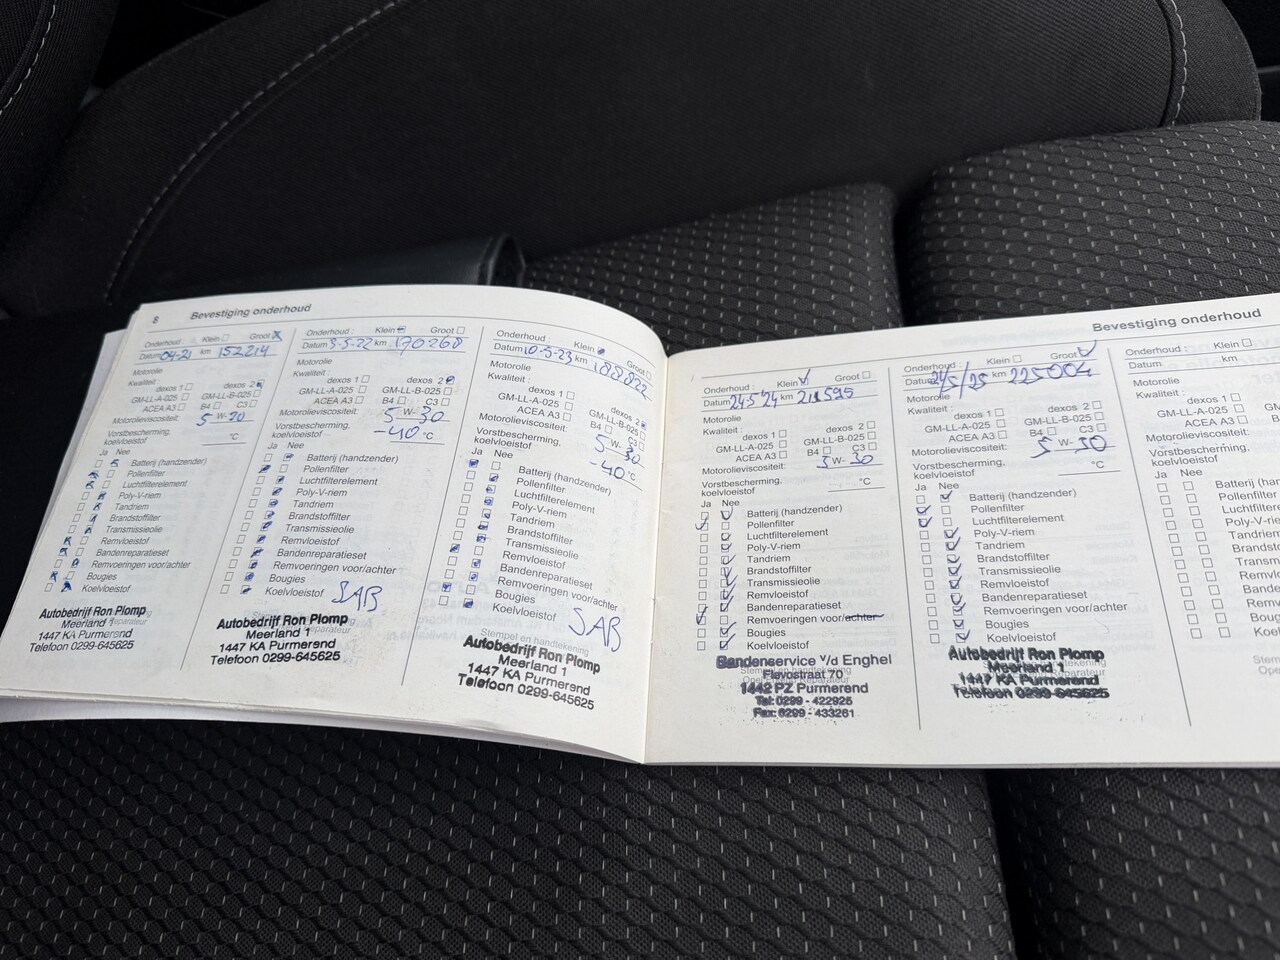 8 Bevestiging onderhoud
Onderhoud : Klein Groot
Datum 04-21 km 152214
Motorolie
Kwaliteit :
dexos 1 dexos 2
GM-LL-A-025 GM-LL-B-025
ACEA A3 B4 C3
Motorolieviscositeit: 5 W- 30
Vorstbescherming,
koelvloeistof °C
Ja Nee
Batterij (handzender)
Pollenfilter
Luchtfilterelement
Poly-V-riem
Tandriem
Brandstoffilter
Transmissieolie
Remvloeistof
Bandenreparatieset
Remvoeringen voor/achter
Bougies
Koelvloeistof
Autobedrijf Ron Plomp
Meerland 1
1447 KA Purmerend
Telefoon 0299-645625
Onderhoud : Klein Groot
Datum 3-5-22 km 170260
Motorolie
Kwaliteit :
dexos 1 dexos 2
GM-LL-A-025 GM-LL-B-025
ACEA A3 B4 C3
Motorolieviscositeit: 5 W- 30
Vorstbescherming,
koelvloeistof -40 °C
Ja Nee
Batterij (handzender)
Pollenfilter
Luchtfilterelement
Poly-V-riem
Tandriem
Brandstoffilter
Transmissieolie
Remvloeistof
Bandenreparatieset
Remvoeringen voor/achter
Bougies
Koelvloeistof
SAB
Autobedrijf Ron Plomp
Meerland 1
1447 KA Purmerend
Telefoon 0299-645625
Onderhoud : Klein Groot
Datum 10-5-23 km 188822
Motorolie
Kwaliteit :
dexos 1 dexos 2
GM-LL-A-025 GM-LL-B-025
ACEA A3 B4 C3
Motorolieviscositeit: 5 W- 30
Vorstbescherming,
koelvloeistof -40 °C
Ja Nee
Batterij (handzender)
Pollenfilter
Luchtfilterelement
Poly-V-riem
Tandriem
Brandstoffilter
Transmissieolie
Remvloeistof
Bandenreparatieset
Remvoeringen voor/achter
Bougies
Koelvloeistof
SAB
Stempel en handtekening
Autobedrijf Ron Plomp
Meerland 1
1447 KA Purmerend
Telefoon 0299-645625
Bevestiging onderhoud
Onderhoud : Klein Groot
Datum 24-5 24 km 211595
Motorolie
Kwaliteit :
dexos 1 dexos 2
GM-LL-A-025 GM-LL-B-025
ACEA A3 B4 C3
Motorolieviscositeit: 5 W- 30
Vorstbescherming,
koelvloeistof °C
Ja Nee
Batterij (handzender)
Pollenfilter
Luchtfilterelement
Poly-V-riem
Tandriem
Brandstoffilter
Transmissieolie
Remvloeistof
Bandenreparatieset
Remvoeringen voor/achter
Bougies
Koelvloeistof
Bandenservice v/d Enghel
Flevostraat 70
1442 PZ Purmerend
Tel: 0299 - 422925
Fax: 0299 - 433261
Onderhoud : Klein Groot
Datum 24/5/25 km 225004
Motorolie
Kwaliteit :
dexos 1 dexos 2
GM-LL-A-025 GM-LL-B-025
ACEA A3 B4 C3
Motorolieviscositeit: 5 W- 30
Vorstbescherming,
koelvloeistof °C
Ja Nee
Batterij (handzender)
Pollenfilter
Luchtfilterelement
Poly-V-riem
Tandriem
Brandstoffilter
Transmissieolie
Remvloeistof
Bandenreparatieset
Remvoeringen voor/achter
Bougies
Koelvloeistof
Autobedrijf Ron Plomp
Meerland 1
1447 KA Purmerend
Telefoon 0299-645625
Onderhoud : Klein
Datum km
Motorolie
Kwaliteit :
dexos 1
GM-LL-A-025
ACEA A3
Motorolieviscositeit:
Vorstbescherming,
koelvloeistof
Ja Nee
Batterij (hand
Pollenfilter
Luchtfilterele
Poly-V-riem
Tandriem
Brandstof
Transmiss
Remvloei
Bandenre
Remvoe
Bougie
Koelv